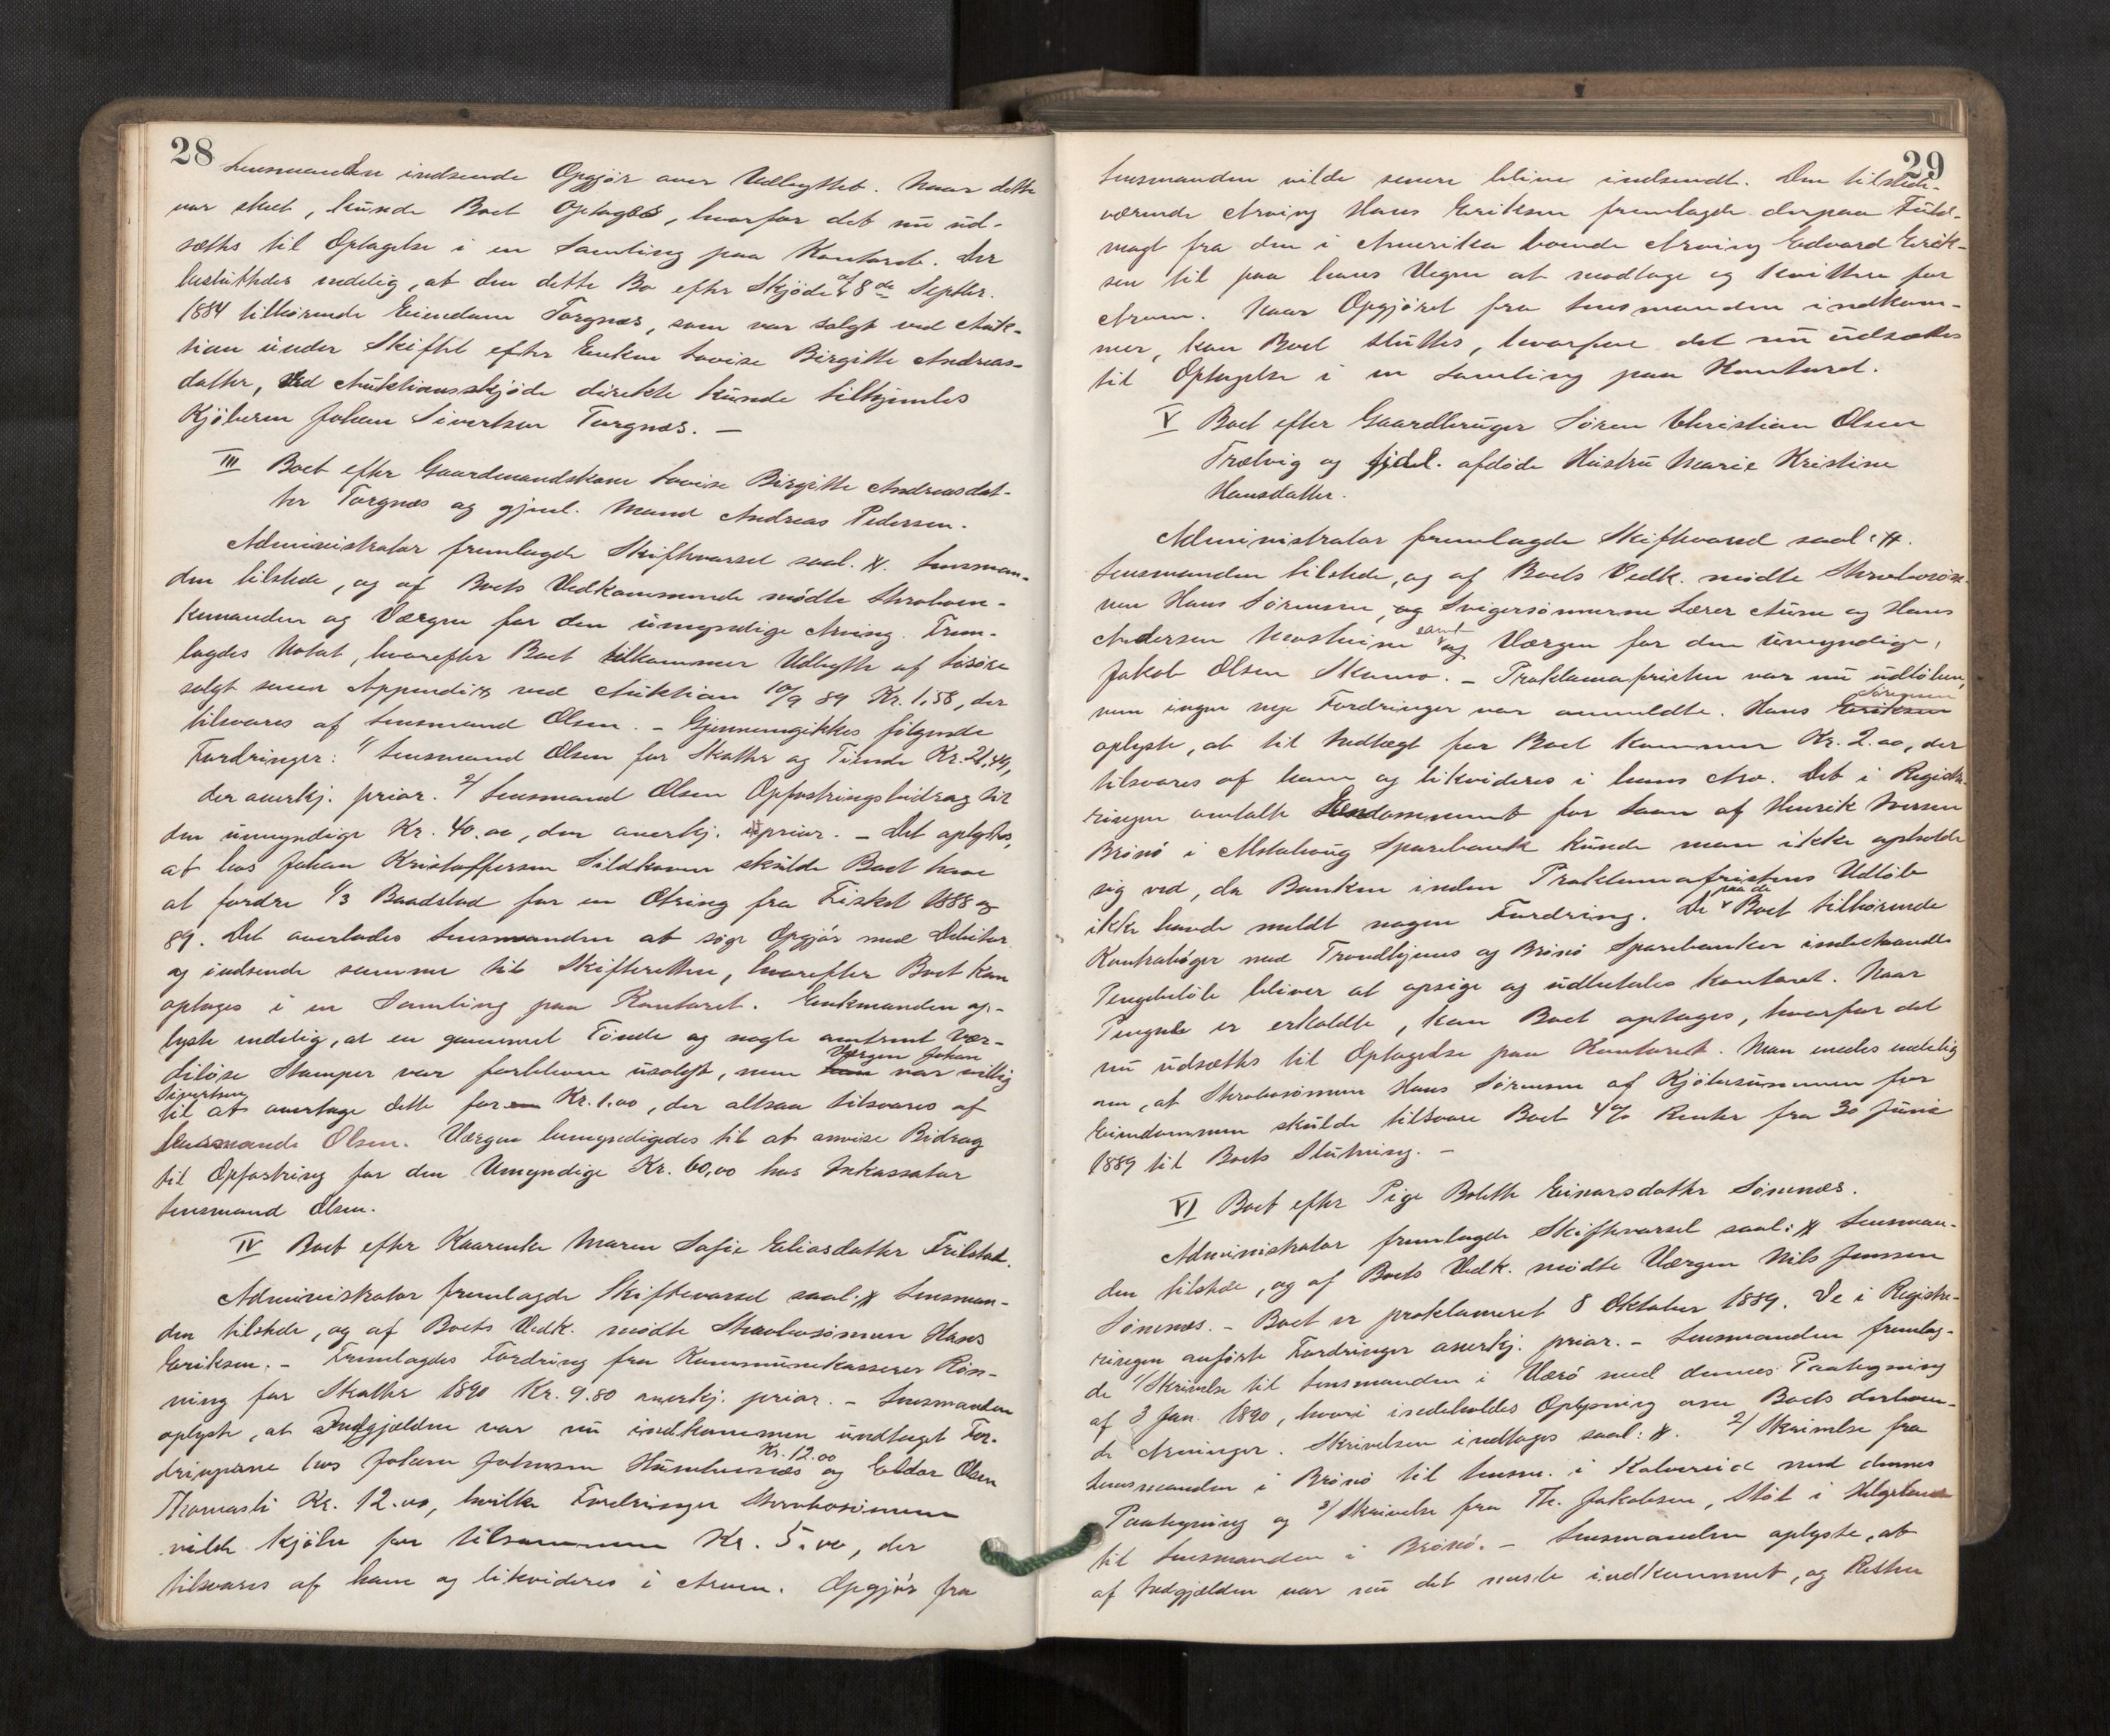 28
Lensmanden indsende Opgjör over Udbyttet. Naar dette
var skeet, kunde Boet optages, hvorfor det nu ud-
sættes til Optagelse i en Samling paa Kontoret. Der
besluttedes endelig, at den dette Bo efter Skjöde af 8de Septbr.
1884 tilhörende Eiendom Torgnæs, som var solgt ved Auk-
tion under Skiftet efter Enken Lovise Birgitte Andreas-
datter, ved Auktionsskjöde direkte kunde tilhjemles
Kjöberen Johan Sivertsen Torgnæs. —
III Boet efter Gaardmandskone Lovise Birgitte Andreasdat-
ter Torgnæs og gjenl. Mand Andreas Pedersen.
Administrator fremlagde Skiftevarsel saal. ℵ. Lensman-
den tilstede, og af Boets Vedkommende mödte Stervboen-
kemanden og Værgen for den umyndige Arving. Frem-
lagdes Notat, hvorefter Boet tilkommer Udbytte af Lösöre
solgt senere Appendix ved Auktion 10/9 89 Kr. 1,58, der
tilsvares af Lensmand Olsen. – Gjennemgikkes fölgende
Fordringer: 1/ Lensmand Olsen for Skatter og Tiende Kr. 21,49,
der anerkj. prior. 2/ Lensmand Olsen Opfostringsbidrag til
den umyndige Kr. 40.00, der anerkj. uprior. – Det oplystes,
at hos Johan Kristoffersen Sildhavn skulde Boet have
at fordre 1/3 Baadslod for en Otring fra Fisket 1888 og
89. Det overlodes Lensmanden at söge Opgjör med Debitor
og indsende samme til Skifteretten, hvorefter Boet kan
optages i en Samling paa Kontoret. Enkemanden op-
lyste endelig, at en gammel Tönde og nogle omtrent vær-
Værgen Johan
dilöse Stamper var forbleven usolgt, men han var villig
Sivertsen
til at overtage dette for en Kr. 1.00, der altsaa tilsvares af
Lensmand Olsen. Værgen bemyndigedes til at anvise Bidrag
til Opfostring for den Umyndige Kr. 60,00 hos Inkassator
Lensmand Olsen.
IV Boet efter Kaarenke Maren Sofie Eliasdatter Trilstad.
Administrator fremlagde Skiftevarsel saal. ℵ Lensman-
den tilstede, og af Boets Vedk. mödte Stervbosönnen Hans
Eriksen. – Fremlagdes Fordring fra Kommunekasserer Rön-
ning for Skatter 1890 Kr. 9.80 anerkj. prior. – Lensmanden
oplyste, at Indgjælden var nu indkommen undtaget For-
Kr. 12.00
dringerne hos Johan Johnsen og Eldor Olsen
Kr. 12.00, hvilke Fordringer Stervbosönnen
vilde kjöbe for tilsammen Kr. 5.00, der
tilsvares af ham og likvideres i Arven. Opgjör fra
29
Lensmanden vilde senere blive indsendt. Den tilstede-
værende Arving Hans Eriksen fremlagde derpaa Fuld-
magt fra den i Amerika boende Arving Edvard Erik-
sen til paa hans Vegne at modtage og kvittere for
Arven. Naar Opgjöret fra Lensmanden indkom-
mer, kan Boet sluttes, hvorfor det nu udsættes
til Optagelse i en Samling paa Kontoret.
V Boet efter Gaardbruger Sören Christian Olsen
Trælvig og tidl. afdöde Hustru Marie Kristine
Hansdatter.
Administrator fremlagde Skiftevarsel saal: ℵ.
Lensmanden tilstede, og af Boets Vedk. mödte Stervbosön-
nen Hans Sörensen, og Svigersönnerne Lærer Aune og Hans
samt
Andersen og Værgen for den umyndige,
Jakob Olsen. – Proklamafristen var nu udlöben,
Sörensen
men ingen nye Fordringer var anmeldte. Hans Eriksen
oplyste, at til Indtægt for Boet kommer Kr. 2.00, der
tilsvares af ham og likvideres i hans Arv. Det i Registe-
ringen omtalte for Laan af Henrik Iversen
Brönö i Alstahoug Sparebank kunde man ikke opholde
sig ved, da Banken inden Proklamafristens Udlöb
paa de
ikke havde meldt nogen Fordring. De Boet tilhörende
Kontraböger med Trondhjems og Brönö Sparebanker indestaaende
Pengebelöb bliver at opsige og udbetales kontoret. Naar
Pengene er erholdte, kan Boet optages, hvorfor det
nu udsættes til Optagelse paa Kontoret. Man enedes endelig
om, at Stervbosönnen Hans Sörensen af Kjöbesummen for
Eiendommen skulde tilsvare Boet 4% Renter fra 30 Juni
1889 til Boets Slutning. –
VI Boet efter Pige Bolette Einarsdatter Sömnæs.
Administrator fremlagde Skiftevarsel saal: ℵ Lensman-
den tilstede, og af Boets Vedk. mödte Værgen Nils Jenssen
Sömnæs. – Boet er proklameret 8 Oktober 1889. De i Registre-
ringen anförte Fordringer anerkj. prior. – Lensmanden fremlag-
de 1/ Skrivelse til Lensmanden i Værö med dennes Paategning
af 3 Jan. 1890, hvori indeholdes Oplysning om Boets derboen-
de Arvinger. Skrivelsen indtages saal: ℵ. 2/ Skrivelse fra
Lensmanden i Brönö til Lensm. i Kolvereid med dennes
Paategning og 3/ Skrivelse fra Th. Jakobsen, Stöt i Helgeland
til Lensmanden i Brönö. – Lensmanden oplyste, at
af Indgjælden var nu det meste indkommet, og Resten